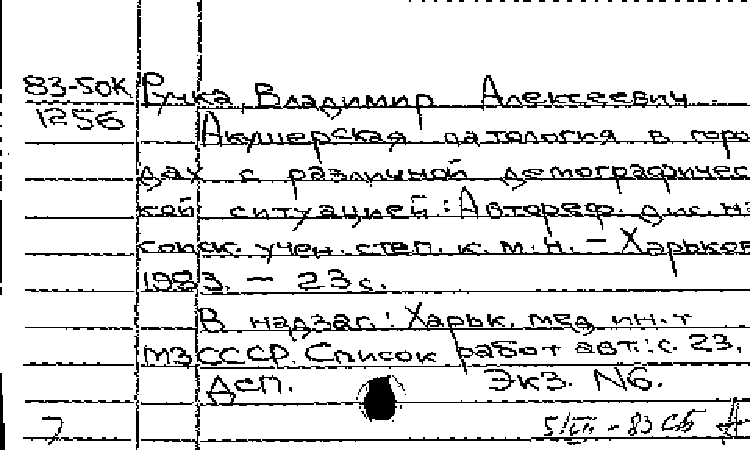 83-50К Ручка, Владимир Алексеевич
1256 Акушерская патология в горо-
дах с различной демографичес-
кой ситуацией: Автореф. дис. на
соиск. учен. степ. к. м. н. – Харьков
1983. – 23 с.
В надзаг.: Харьк. мед. ин-т
МЗ СССР. Список работ авт.: с. 23.
Дсп. Экз. №6.
7 5/III - 83 СБ